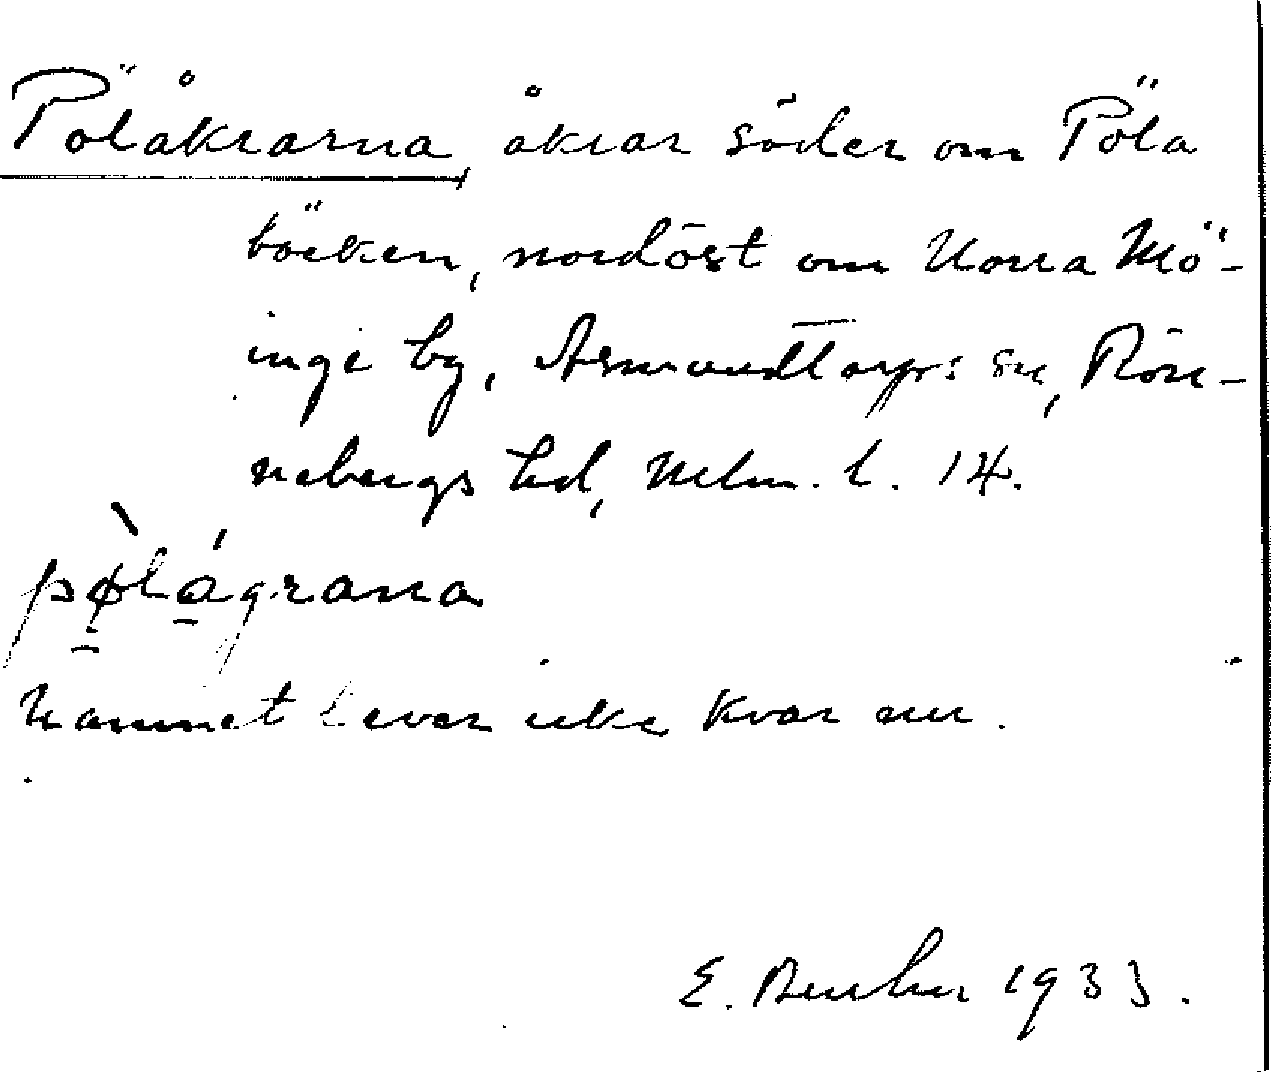 Pölåkrarna, åkrar söder om Pöla
böcken, nordöst om Norra Mö-
inge by, Asmundtorps sn, Rön-
nebergs hd, Mlm. l. 14.
pø̀lágrana
Namnet lever icke kvar nu.
E. 1933.